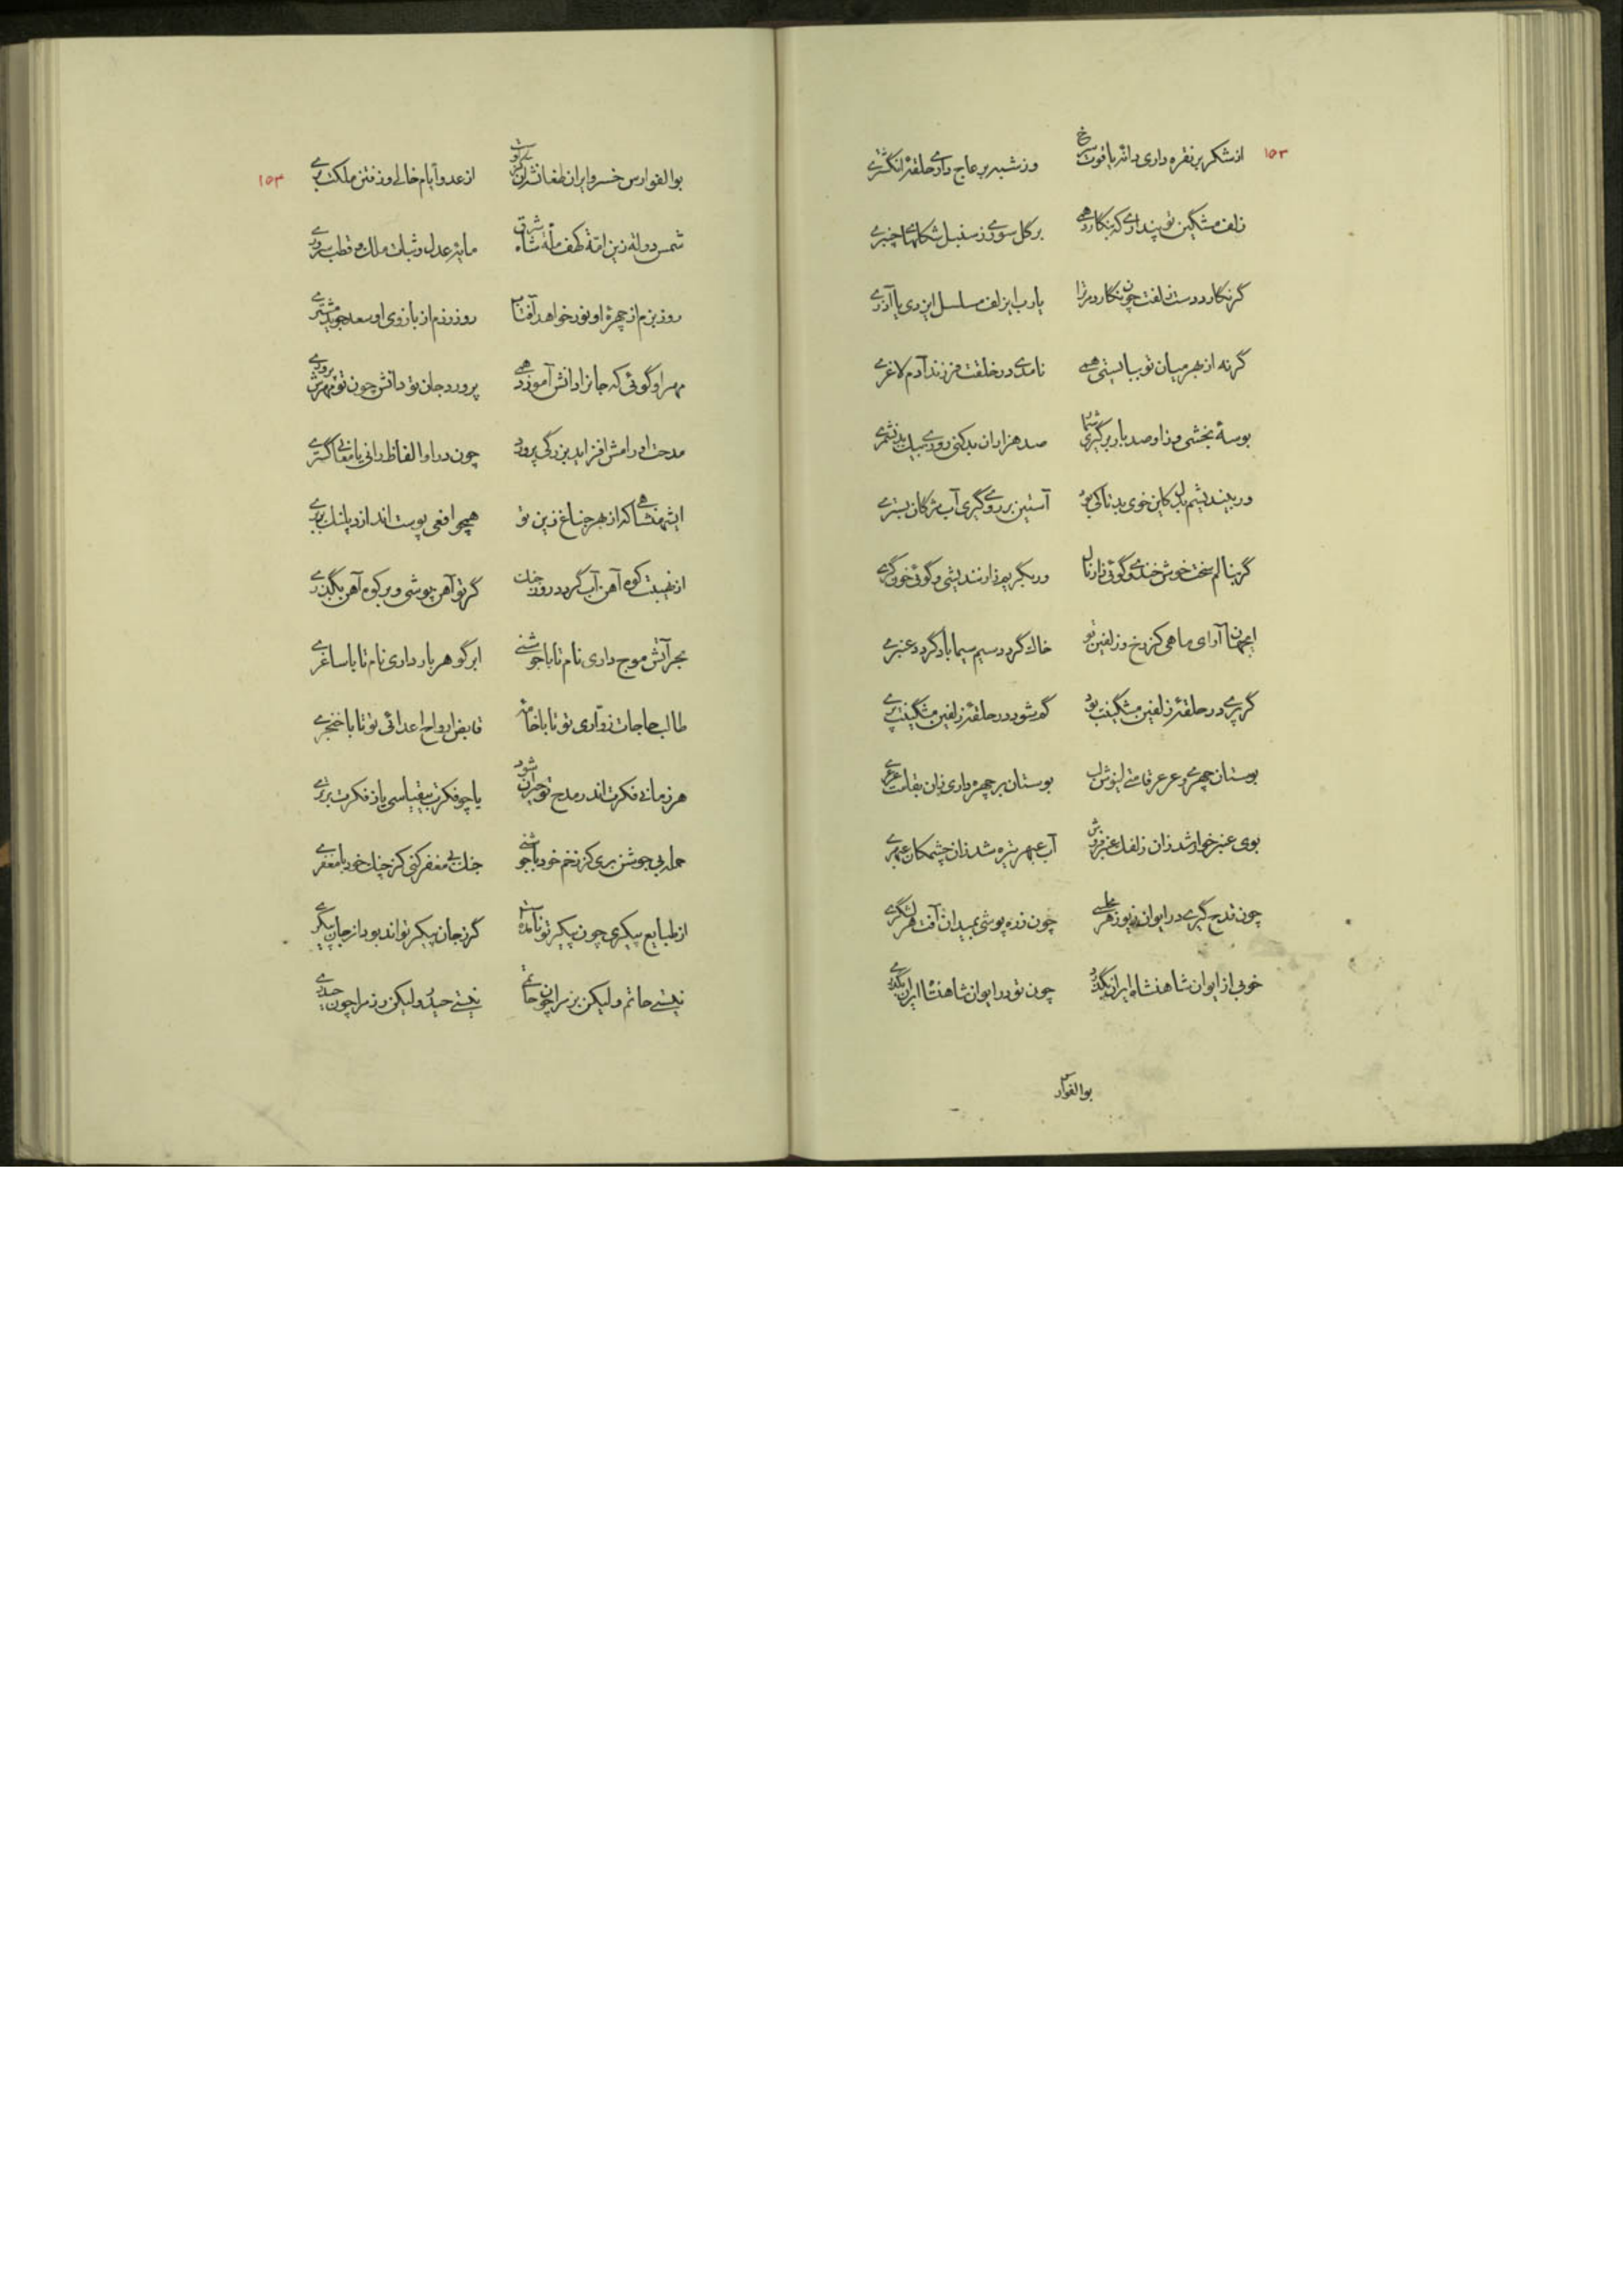 ۱۵۳
از شکر بر نقره داری دانهٔ یاقوت سرخ وز شبه بر عاج داری حلقهٔ انگشتری
زلف مشکین تو پنداری که بنگارد همی بر گل سوری ز سنبل شکلهای چنبری
گر نگارد دست زلفت چون نگارد مر ترا یارب این زلف مسلسل ایزدی یا آزری
گر نه از بهر میان تو ببایستی همی نامدی در خلقت فرزند آدم لاغری
بوسهٔ بخشی وزا و صد بار برگیری شمار صد هزاران بد کنی و روی یک بد نشمری
ور ببیند چشم بد کاین خوی بد تا کی بود آستین بر روی گیری آب مژگان بستری
گر بنالم سخت خوش خندی و گوئی نار نال ور بگریم زار نندیشی و گوئی خون گری
ای جهان آرای ماهی کز رخ و زلفین تو خاک گردد سیم سیما باد گردد عنبری
گر پری در حلقهٔ زلفین مشکینت بود گم شود در حلقهٔ زلفین مشکینت پری
بوستان چهری و عرعر قامتی نوش لب بوستان بر چهره داری زان بقامت عرعری
بوی عنبر خوار شد زان زلفک عنبر فروش آب عبهر تیره شد زان چشمکان عبهری
چون قدح گیری در ایوان زیور هر مجلسی چون زره پوشی بمیدان آفت هر لشگری
خوبی از ایوان شاهنشاه ایران بگذرد چون تو در ایوان شاهنشاه ایران بگذری
بوالفوارس
۱۵۳
بوالفوارس خسرو ایران طغانشاه آن کزوست از عدو ایام خالی وز فتن ملکت بری
شمس دولة زین امة کهف ملة شاه شرق مایهٔ عدل و ثبات ملک و قطب سروری
روز بزم از چهرهٔ او نور خواهد آفتاب روز رزم از بازوی او سعد جوید مشتری
مهر او گوئی که جانرا دانش آموزد همی پرورد جان تو دانش چون تو مهرش پروری
مدحت او رامش افزاید بزرگی پرورد چون در او الفاظ رانی یا معانی گستری
ای شهنشاهی که از بهر جناغ زین تو همچو افعی پوست اندازد پلنگ بربری
از نهیبت کوه آهن آب گردد روز جنگ گر تو آهن پوشی و بر کوه آهن بگذری
بحر آتش موج داری نام تا با جوشنی ابر گوهر بار داری نام تا با ساغری
طالب حاجات زوّاری تو تا با خامهٔ قابض ارواح اعدائی تو تا با خنجری
هر زمانی فکرت اندر مدح تو حیران شود یا چو فکرت بیقیاسی یا ز فکرت برتری
حمله بی جوشن بری کز زخم خود با جوشنی جنگ بی مغفر کنی کز جنگ خود با مغفری
از طبایع پیکری چون پیکر تو نامدست گر ز جان پیکر تواند بود از جان پیکری
نیستی حاتم ولیکن بزم را چون حاتمی نیستی حیدر ولیکن رزم را چون حیدری